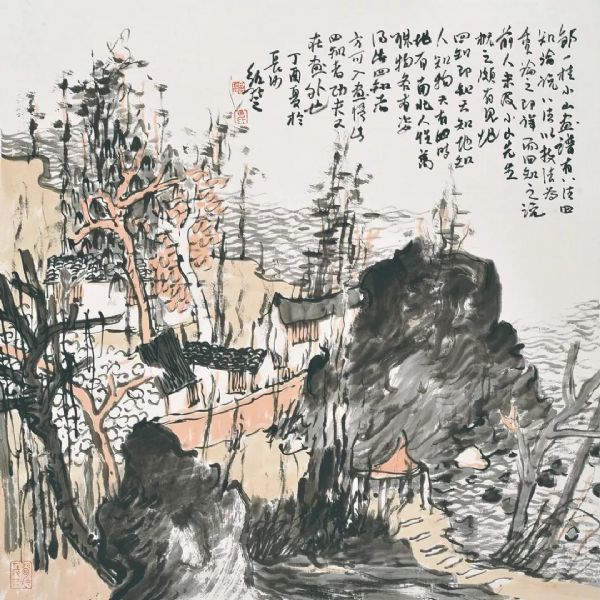 邹一桂小山画谱有八法四
知论说八法以技法为
论之即详而四知之说
前人未及小山先生
概之颇有见地
四知即知天知地知
人知物天有四时
地有南北人性万
殊物各有姿
得法四知者
方可入画
四知者功夫又
在画外也
丁酉夏於
长安